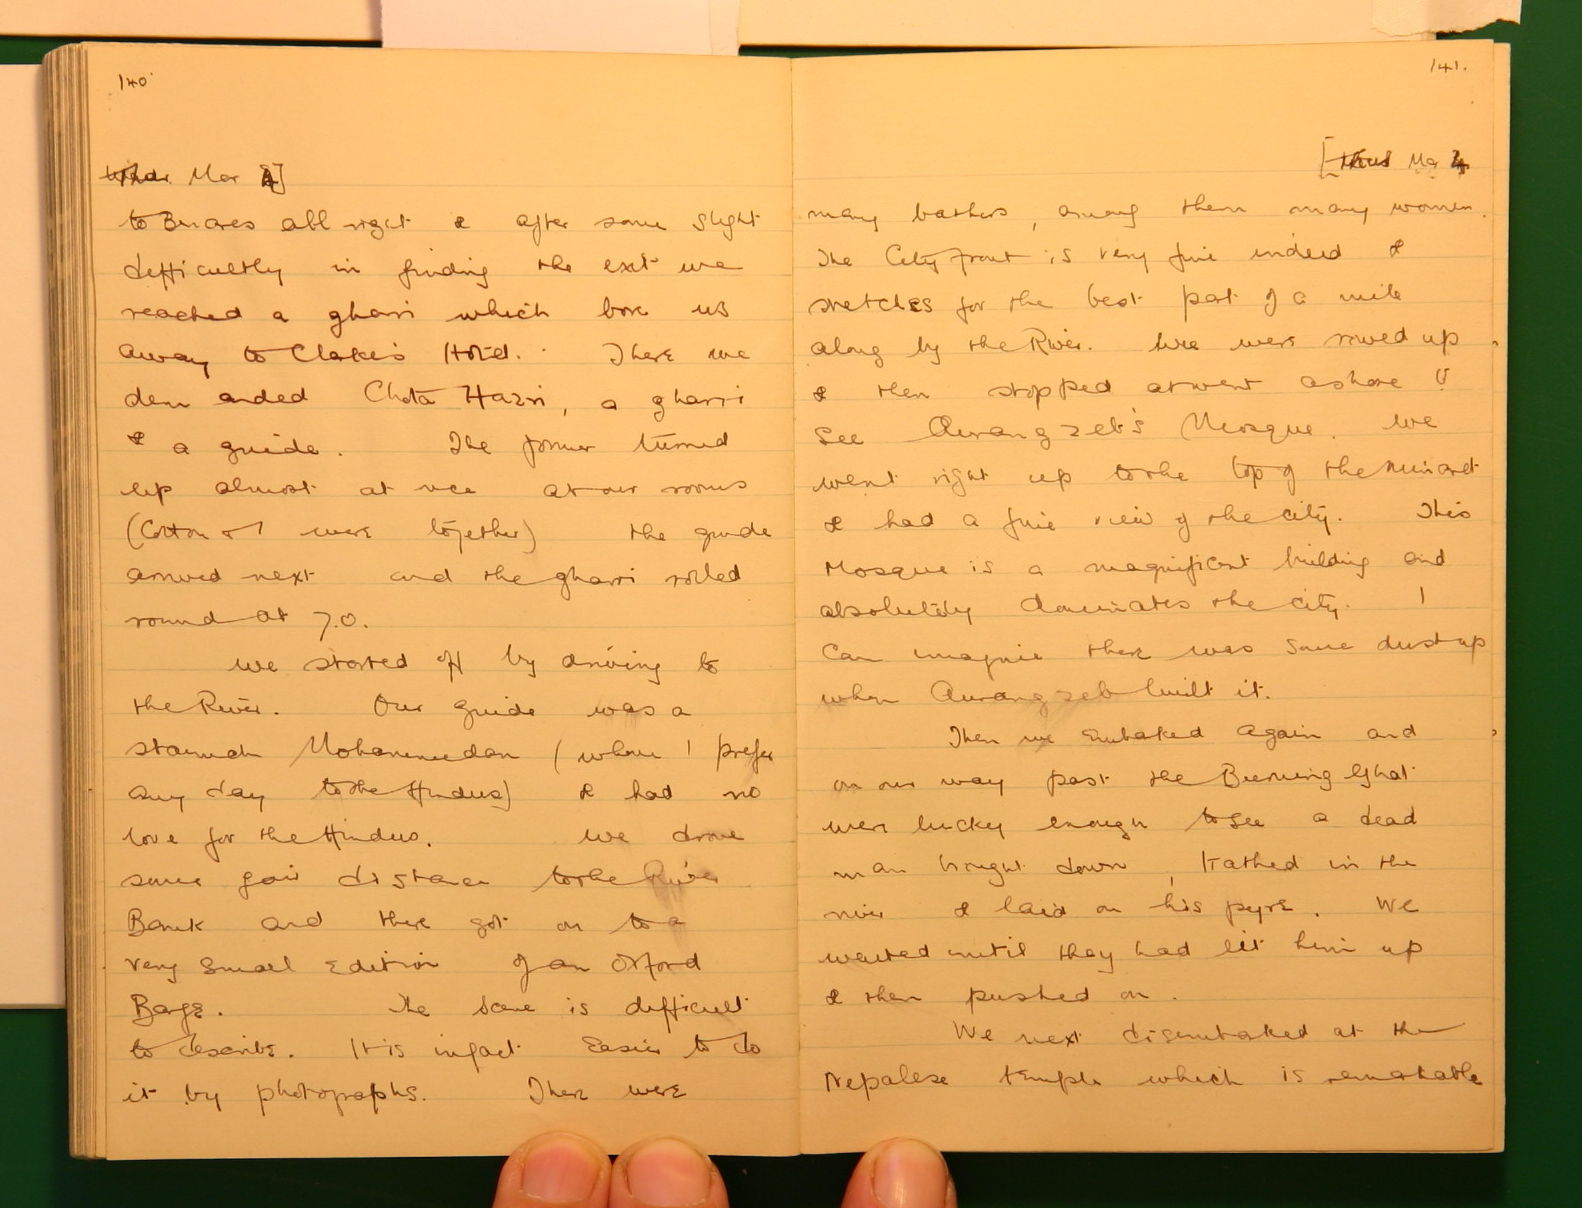 140
Mar 4]
to Benares all right & after some slight
difficultly in finding the exit we
reached a gharri which bore us
away to Clarke's Hotel. There we
demanded Chota Hazri, a gharri
& a guide. The former turned
up almost at once at our rooms
(Cotton & I were together) the guide
arrived next and the gharri rolled
round at 7.0.
We started off by driving to
the River. Our guide was a
staunch Mohammedan (whom I prefer
any day to the Hindus) & had no
love for the Hindus. We drove
some fair distance to the River
Bank and there got on to a
very small edition of an Oxford
Barge. The scene is difficult
to describe. It is in fact easier to do
it by photographs. There were
141.
[Thurs Mar 4
many bathers, among them many women.
The City front is very fine indeed &
stretches for the best part of a mile
along by the River. We were rowed up
& then stopped & went ashore to
see Aurangzeb's Mosque. We
went right up to the top of the minaret
& had a fine view of the city. This
Mosque is a magnificent building and
absolutely dominates the city. I
can imagine there was some dust up
when Aurangzeb built it.
Then we embarked again and
on our way past the Burning Ghat
were lucky enough to see a dead
man brought down, bathed in the
river & laid on his pyre. We
waited until they had lit him up
& then pushed on.
We next disembarked at the
Nepalese temple which is remarkable